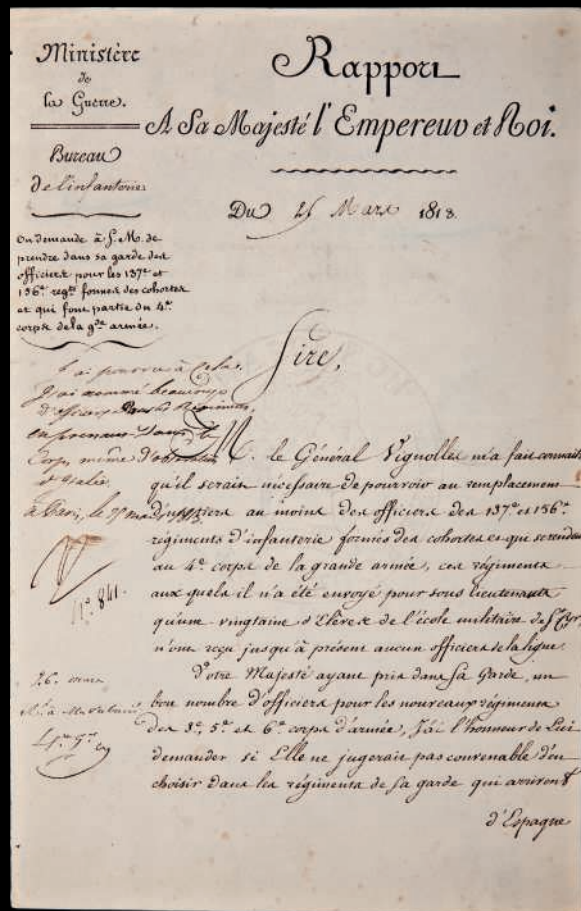 Ministère
de
la Guerre.
Bureau
de l'infanterie
On demande à S. M. de
prendre dans sa garde des
officiers pour les 137e et
156e regts formés des cohortes
et qui font partie du 4e
corps de la gde armée.
Rapport
A Sa Majesté l'Empereur et Roi.
Du 25 Mars 1813.
Sire,
J'ai pourvu à cela.
J'ai nommé beaucoup
d'officiers
en prenant dans le
Corps même d'observation
d'Italie.
à Paris, le
N
No. 841.
M. le Général Vignolles m'a fait connaitre
qu'il serait nécessaire de pourvoir au remplacement
d'un tiers au moins des officiers des 137e et 156e
régiments d'infanterie formés des cohortes et qui se rendent
au 4e corps de la grande armée, ces régiments
aux quels il n'a été envoyé pour sous lieutenants
qu'une vingtaine d'Elèves de l'école militaire de St Cyr,
n'ont reçu jusqu'à présent aucun officier de la ligne.
Votre Majesté ayant pris dans Sa Garde, un
bon nombre d'officiers pour les nouveaux régiments
des 3e, 5e et 6e corps d'armée, J'ai l'honneur de Lui
demander si Elle ne jugerait pas convenable d'en
choisir dans les régiments de Sa garde qui arrivent
d'Espagne